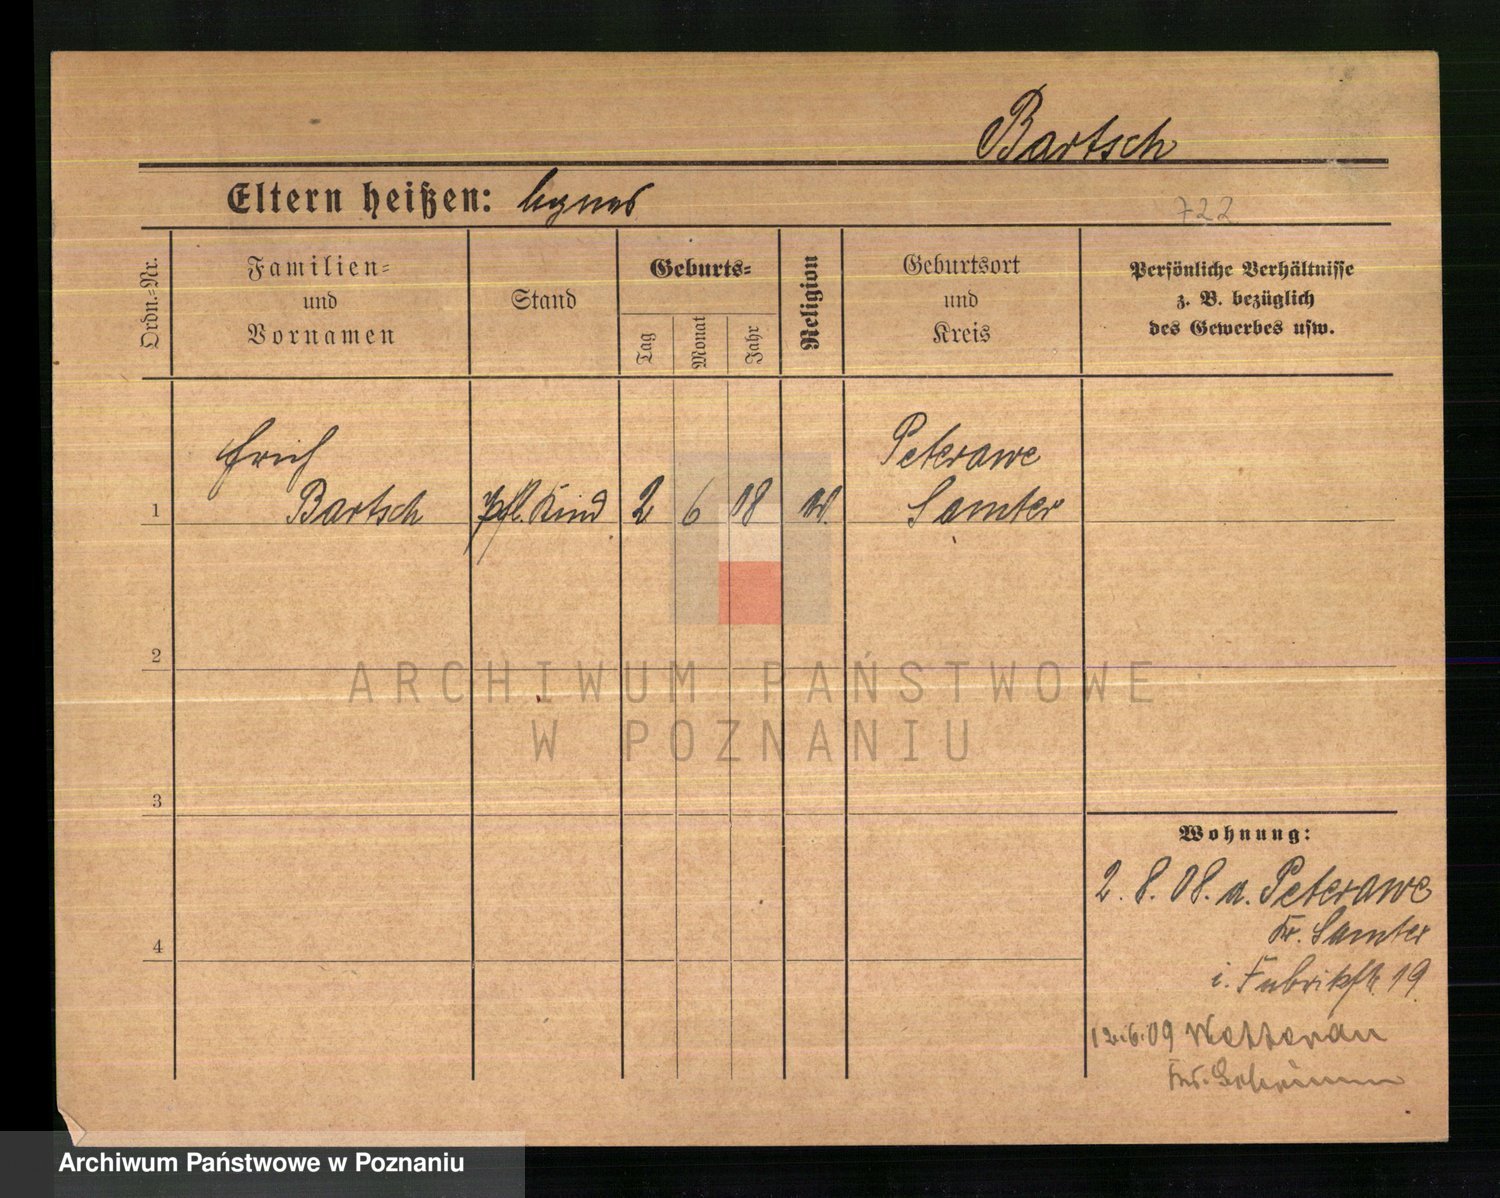 Bartsch
Eltern heißen: Agnes
722
Ordn.-Nr.
Familien-
und
Vornamen
Stand
Geburts-
Tag
Monat
Jahr
Religion
Geburtsort
und
Kreis
Persönliche Verhältnisse
z. B. bezüglich
des Gewerbes usw.
Erich
Bartsch
1
Pfl. Kind
2
6
08
Peterawe
Samter
2
3
4
ARCHIWUM PAŃSTWOWE
W POZNANIU
Wohnung:
2. 8. 08. a. Peterawe
Kr. Samter
i. Fabrikstr. 19
12.6.09
Archiwum Państwowe w Poznaniu